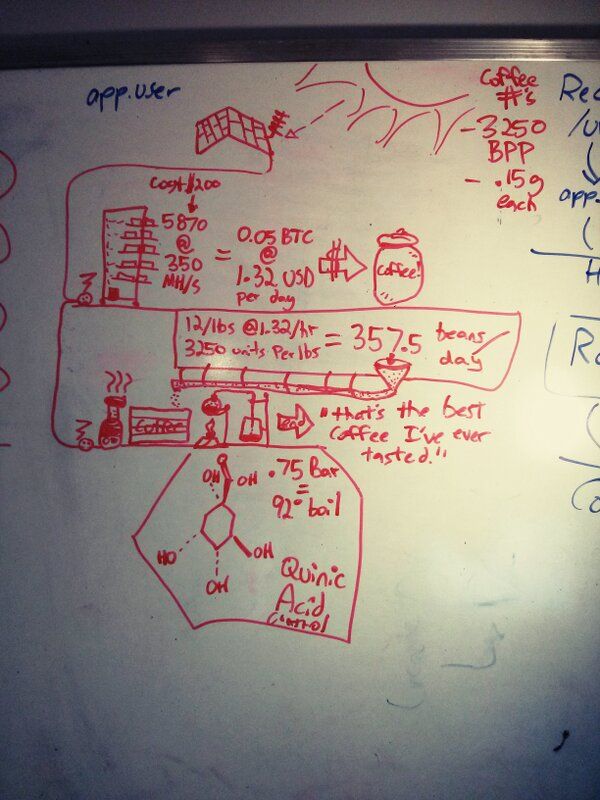 app.user
Coffee
#'s
- 3250
BPP
- .15g
each
/u
app.
Cost $200
5870
@
350
MH/s
=
0.05 BTC
@
1.32 USD
per day
Coffee!
12/lbs @1.32/hr
3250 units Per lbs
= 357.5 beans
day
"that's the best
Coffee I've ever
tasted."
OH
OH
HO
OH
OH
.75 Bar
=
92° boil
Quinic
Acid
Control